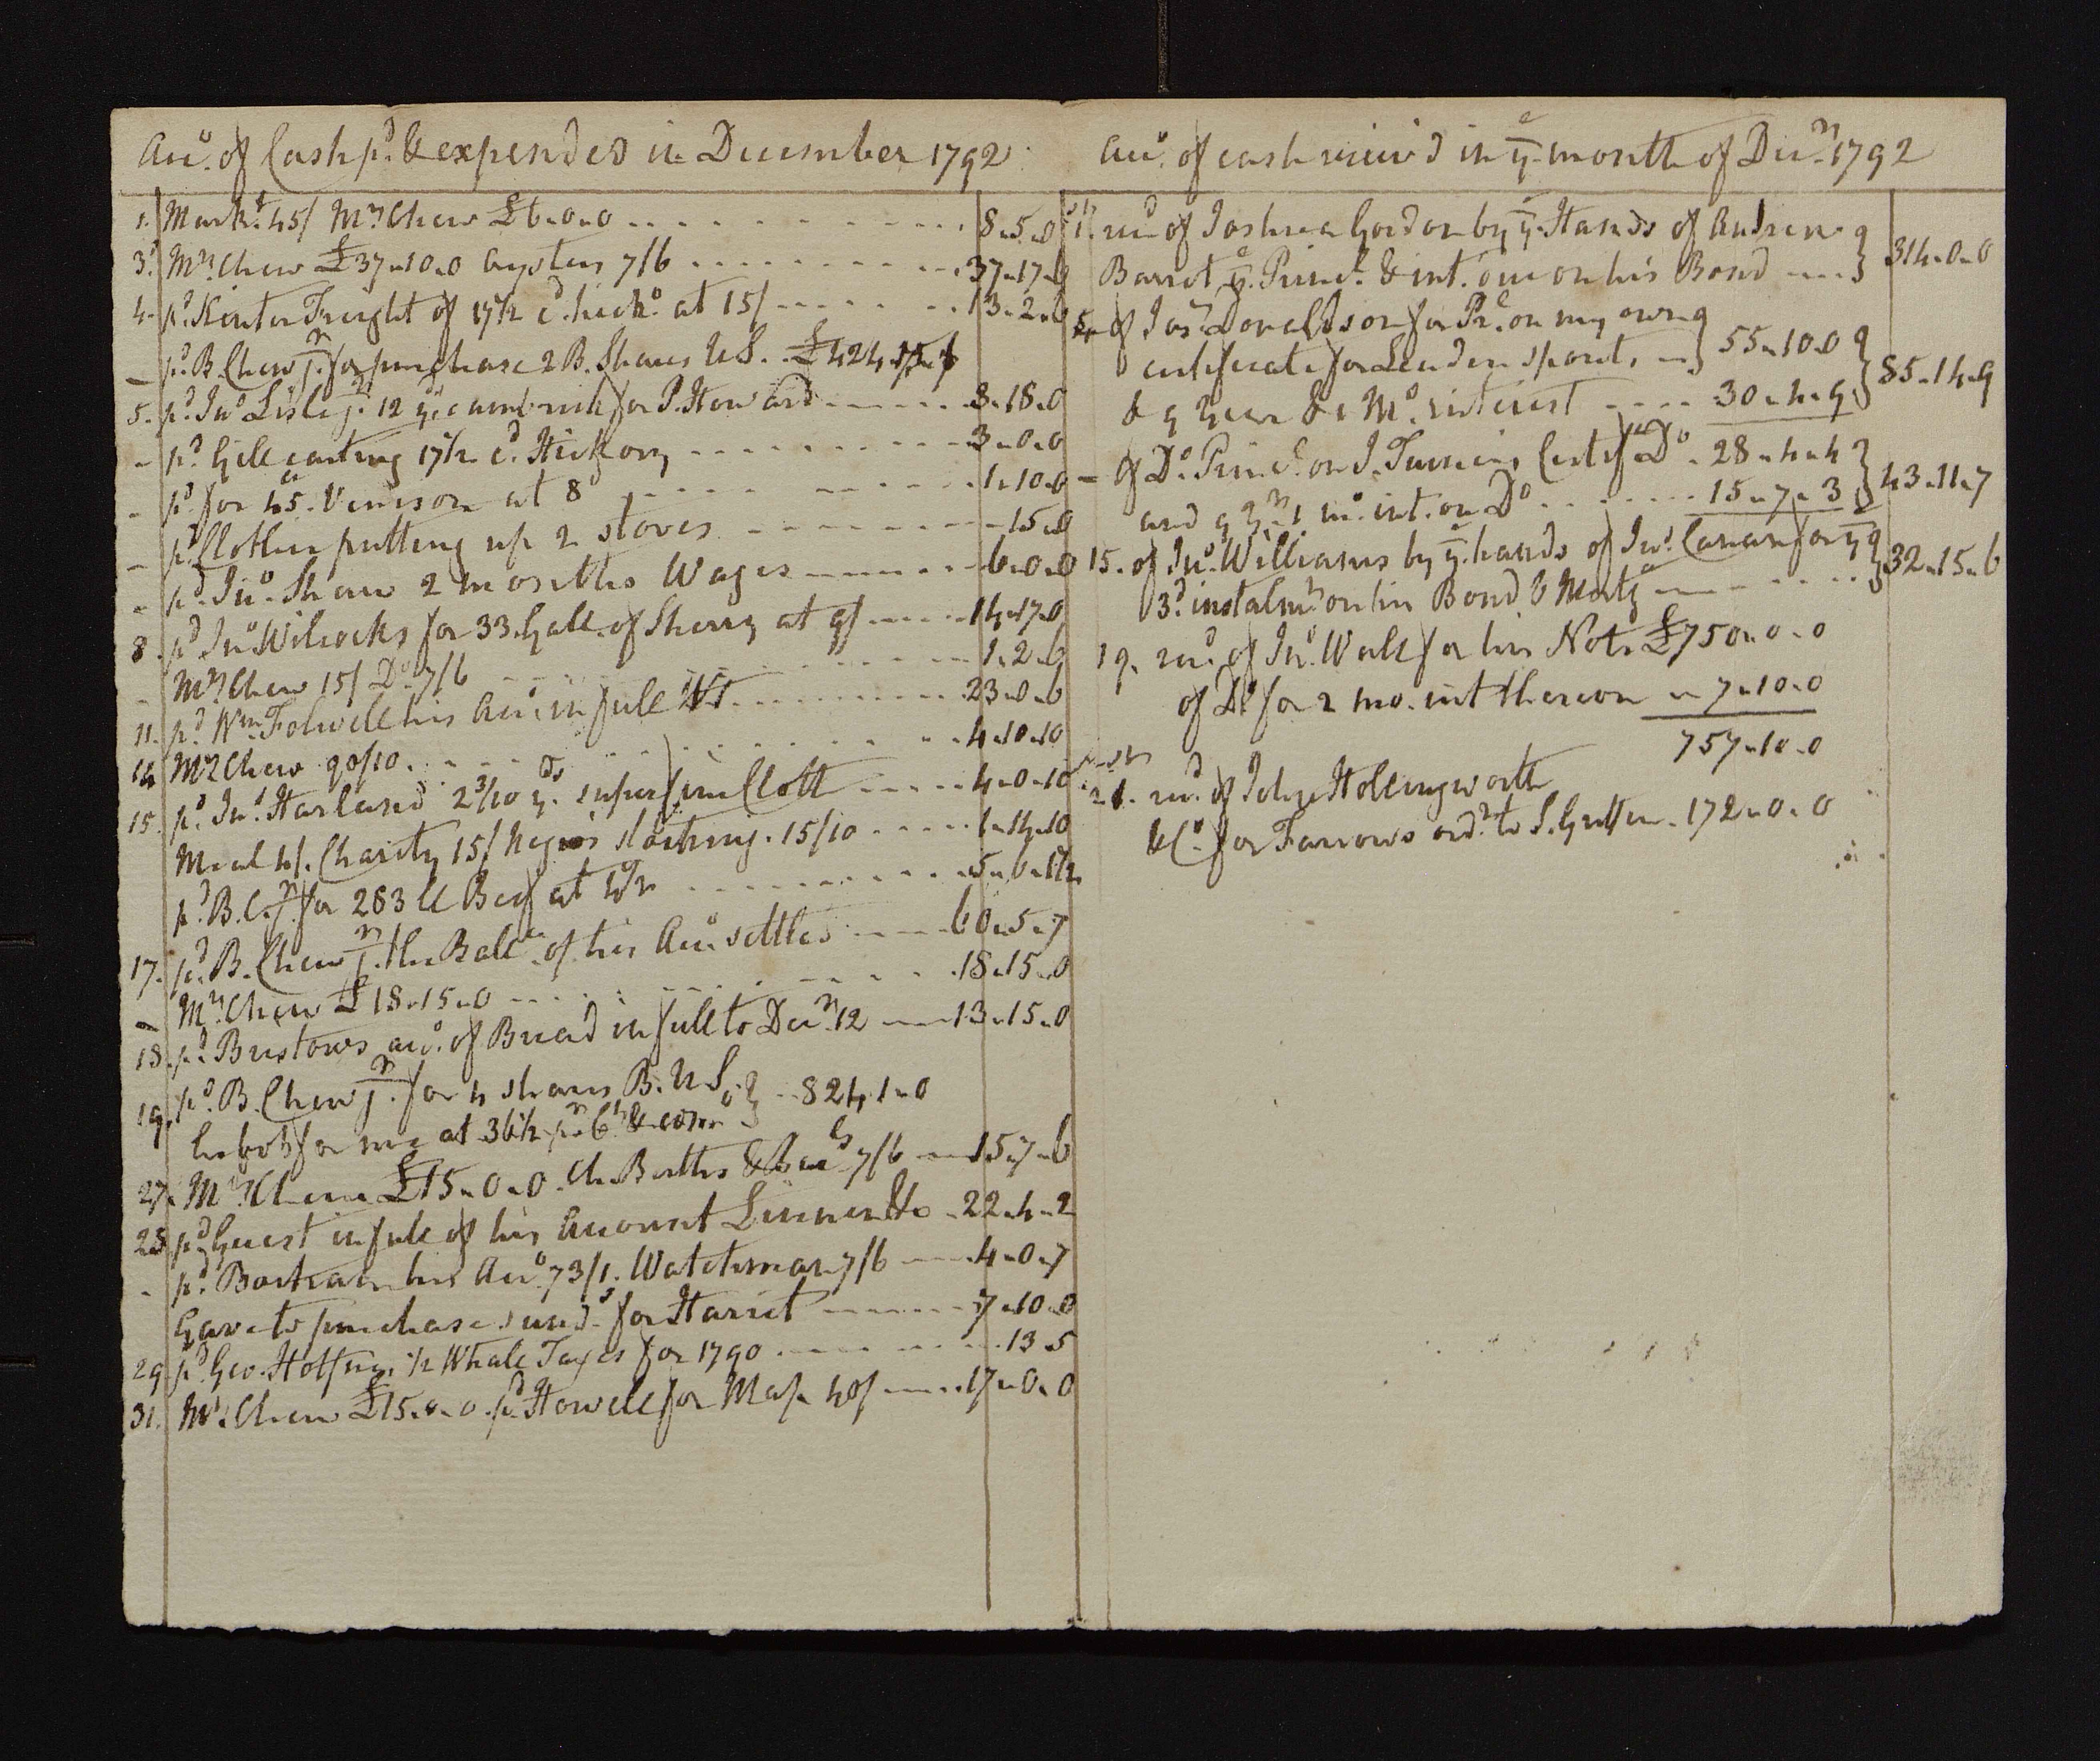 Accot. of Cash pd. & expended in December 1792
1. Markt. 45/ Mrs. Chew £6..0..0 8..5..0
3d. Mrs. Chew £37..10..0 Oysters 7/6 37..17..6
4. pd. Kenter Freight of 17½ cd. hicko. at 15/ 13..2..6
– pd. B. Chew jr. for purchase 2 B. Shares U S. £424
5. pd. Jno. Lisle jr. 12 yds. cambrick for P. Howard 3..18..0
– pd. Gill carting 17½ cd. Hickory 3..0..0
– pd. for 45 lb. Venison at 8d 1..10..0
– pd. Clothier putting up 2 stoves 15..0
– pd. Jno. Shaw 2 months Wages 6..0..0
8. pd. Jno. Wilcocks for 33 Galls. of Sherry at 9/ 14..17..0
– Mrs. Chew 15/ Do. 7/6 1..2..6
11. pd. Wm. Folwell his Acco. in full 23..0..6
14 Mrs. Chew 90/10 4..10..10
15. pd. Jno. Harland 2 3/10 yds. superfine Cloth 4..0..10
Meal 4/. Charity 15/ Negros cloathing. 15/10 1..14..10
pd. B. C. jr. for 263 lb Beef at 4½ 5..0..1½
17. pd. B. Chew jr. the Balle. of his Acco. settled 60..5..7
– Mrs. Chew £18..15..0 18..15..0
18. pd. Bustows acco. of Bread in full to Decr. 12 13..15..0
19. pd. B. Chew jr. for 4 shares B. U S. } 824..1..0
he bot. for me at 36½ pr. Ct. & como. }
27. Mrs. Chew £15..0..0. 7/6 15..7..6
28 pd. Guest in full of his Account Linnen &c 22..4..2
– pd. Bartram his Acco. 73/1. Watchman 7/6 4..0..7
Gave to purchase sunds. for Harriet 7..10..0
29 pd. Geo. ½ Whale Taxes for 1790 13..5
31. Mrs. Chew £15..0..0. pd. Howell for Map 40/ 17..0..0
Acco. of cash receiv'd in ye. month of Decr. 1792
1st. recd. of Joshua Gordon by ye. Hands of Andrew }
Barrot ye. Princl. & int. due on his Bond } 314..0..0
5. of Jos. Donaldson for Pre. on my own }
certificate for Leaden spouts } 55..10..0 }
& 9 Year & 1 Mo. interest 30..4..9 } 85..14..9
– of Do. Princl. on J. Certife. Do. 28..4..4 }
and 9 Yrs. 1 mo. int. on Do. 15..7..3 } 43..11..7
15. of Jno. Williams by ye. hands of Jno. Canan for ye }
3d. instalmt. on his Bond & Mortge. } 32..15..6
19. recd. of Jno. Wall for his Note £750..0..0
of Do. for 2 mo. int thereon 7..10..0
757..10..0
21st. recd. of Jehu Hollingworth
& Co. for Farrows ordr. to 172..0..0